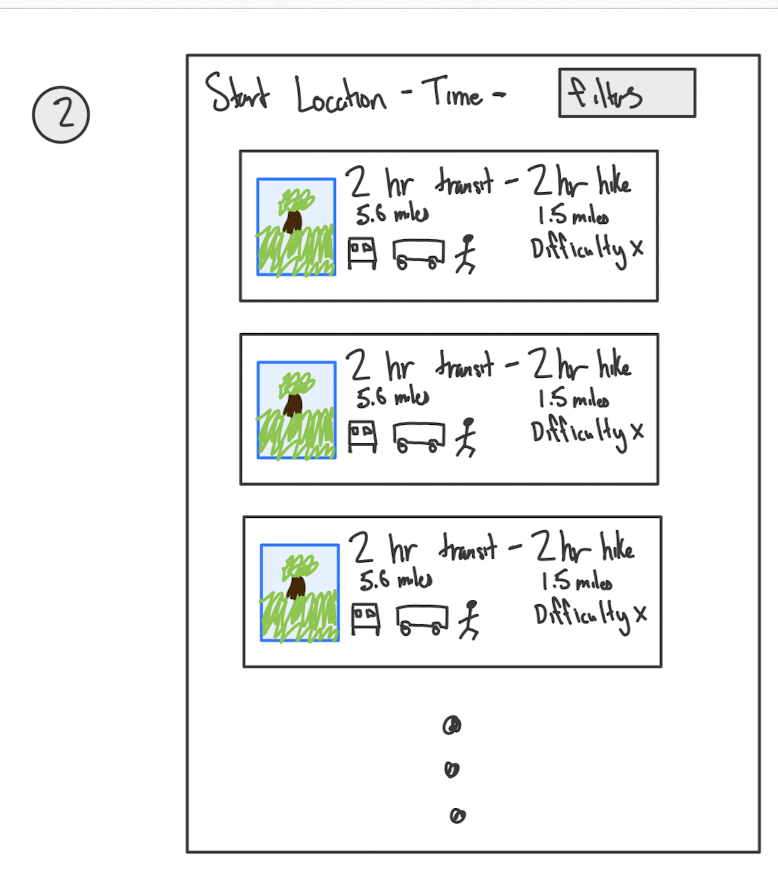 2
Start Location - Time -
filters
2 hr transit - 2 hr hike
5.6 miles 1.5 miles
Difficulty x
2 hr transit - 2 hr hike
5.6 miles 1.5 miles
Difficulty x
2 hr transit - 2 hr hike
5.6 miles 1.5 miles
Difficulty x